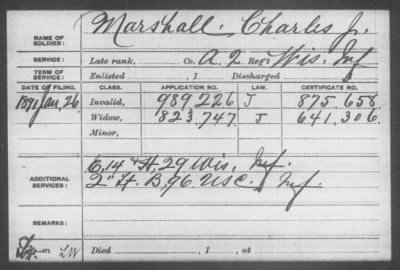 NAME OF SOLDIER: Marshall, Charles Jr.
SERVICE: Late rank, Co. A, 2 Reg't Wis. Inf
TERM OF SERVICE: Enlisted , 1 Discharged
DATE OF FILING. CLASS. APPLICATION NO. LAW. CERTIFICATE NO.
1891 Jan, 26. Invalid, 989,226 J 875.658.
Widow, 823,747. J 641,306.
Minor,
ADDITIONAL SERVICES: E, 14 & H, 29 Wis, Inf.
2" H. B, 96. USC. Inf.
REMARKS:
LW Died , 1 , at